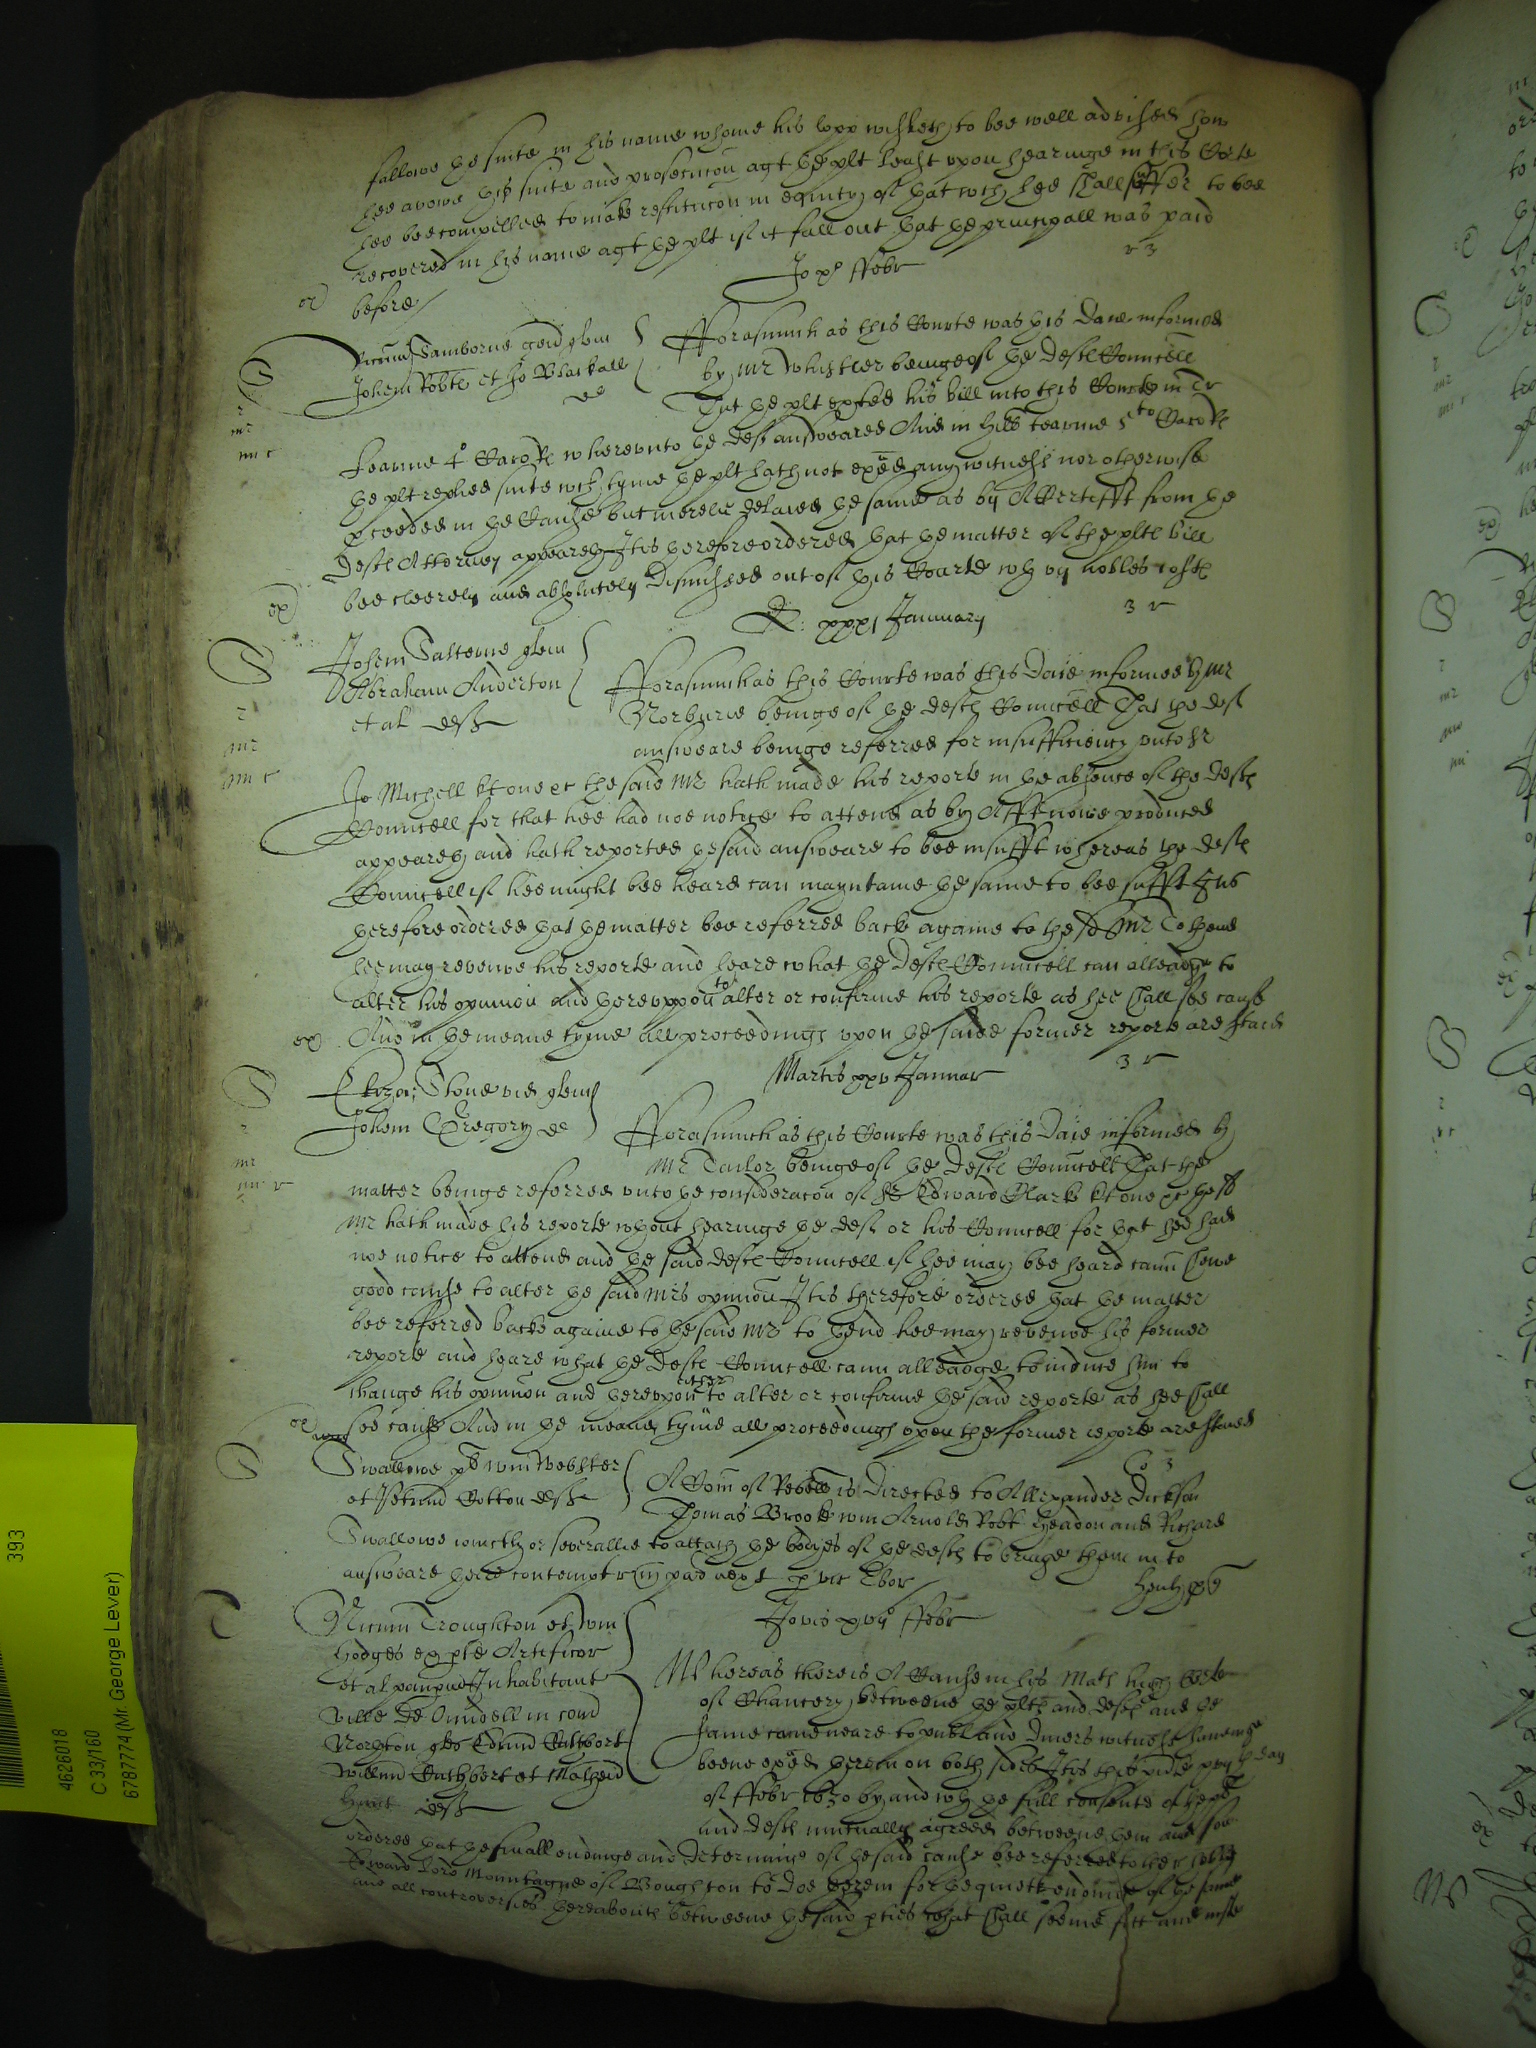 followe the suite in his name whome his lopp wisheth to bee well advised how
hee avowe this suite and prosecucon agt the plt least upon hearinge in this Corte
hee bee compelled to make restitucon in equity of that wch hee shall suffer to bee
recovered in his name agt the plt if it fall out that the principall was paid
before
Jo xo ffebr
r 3
Samborne gen qlem
Johem et Jo Blackall
de
fforasmuch as this Courte was this daie informed
by Mr Whistler beinge of the deftes Councell
That the plt exhted his bill into this Courte in Tr
Tearme 4o Caroli whereunto the deft answeared And in Hill tearme 5to Caroli
the plt replied since wch tyme the plt hath not exed any witness nor otherwise
pceeded in the Cause but merelie delaied the same as by A Certifft from the
deftes Attorney appeareth It is therefore ordered that the matter of the pltes bill
bee cleerely and absolutely dismissed out of this Courte wth vj nobles costes
xxxj January
3 r
Johem Salterne qlem
Abraham Anderton
et al deftes
fforasmuch as this Courte was this daie informed by Mr
Norburie beinge of the deftes Councell That the deft
answeare beinge referred for insufficiency unto Sr
Jo Michell kt one et the said Mr hath made his reporte in the absence of the deftes
Councell for that hee had noe notice to attend as by Afft nowe produced
appeareth and hath reported the said answeare to bee insufft whereas the deftes
Councell if hee might bee heard can mayntaine the same to bee sufft It is
therefore ordered that the matter bee referred back againe to the sd Mr To thend
hee may reveiwe his reporte and heare what the deftes Councell can alleadge to
alter his opinion and thereuppon to alter or confirme his reporte as hee shall see cause
And in the meane tyme all proceedings upon the saide former reporte are staied
Martis xxv Januar
3 r
Stone vid qlem
Johem Gregory de
fforasmuch as this Courte was this daie informed by
Mr Tailor beinge of the deftes Councell That the
matter beinge referred unto the consideracon of Sr Edward Clark kt one et the sd
Mr hath made his reporte wthout hearinge the deft or his Councell for that hee had
noe notice to attend and the said deftes Councell if hee may bee heard cann shewe
good cause to alter the said Mrs opinion It is therefore ordered that the matter
bee referred backe againe to the said Mr to thend hee may reveiwe his former
reporte and heare what the deftes Councell cann alleadge to induce him to
change his opinion and thereuppon either to alter or confirme the said reporte as hee shall
see cause And in the meane tyme all proceedings upon the former reporte are staied
Swallowe Wm Webster
et Cotton deftes
A Com of Rebell is directed to Allexander Dickson
Thomas Brooke Wm Arnold Robt Headon and Richard
Swallowe iointly or severallie to attach the bodyes of the deftes to bringe them in to
answeare theire contempt p vic Ebor
Jovis xvij ffebr
Troughton et Wm
Hodges ex pte Artificor
et al Inhabitant
ville de Oundell in com
Northton Edmd Cuthbert
Willm Cuthbert et
Hunt deftes
Whereas there is A Cause in his Mats high Corte
of Chancery betweene the pltes and deftes and the
same came neare to publ and divers witnesses haveinge
beene exed therein on both sides It is this day
of ffebr 1630 by and wth the full consente of the ptes
and deftes mutually agreed betweene them and soe
ordered that the finall endinge and determininge of the said cause bee referred to
Edward Lord Mountague of Boughton to doe therein for the quiett endinge of the same
and all controversies thereaboute betweene the said pties what shall seeme fitt and iuste
393
4626018
C 33/160
6787774 (Mr. George Lever)